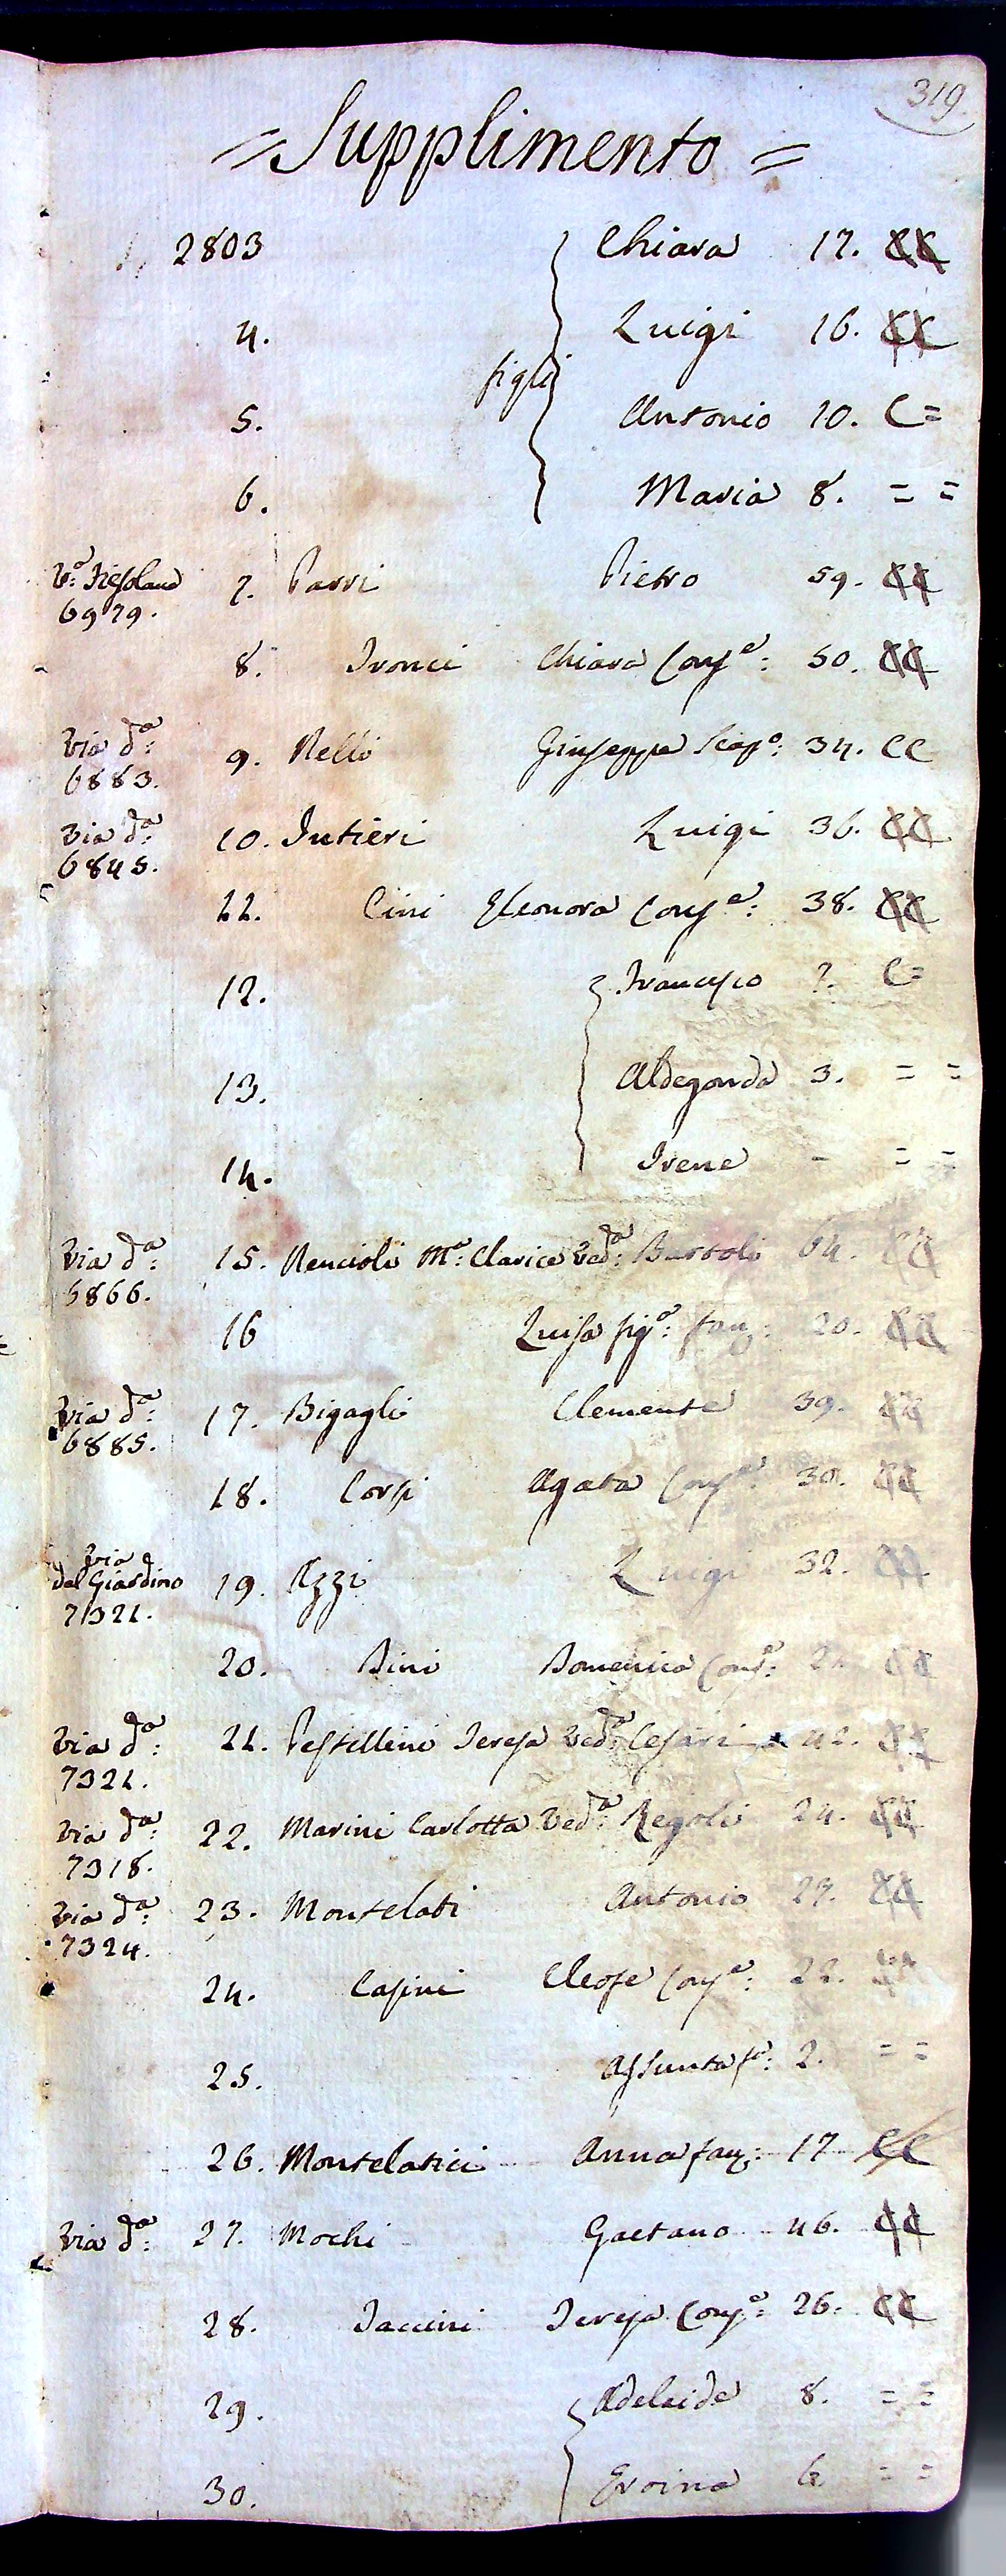 319.
= Supplimento =
2803 Chiara 17. CC
4. Luigi 16. CC
figli
5. Antonio 10. C =
6. Maria 8. = =
Va: Fiesolana 7. Parri Pietro 59. CC
6979.
8. Tronci Chiara Conge: 50. CC
Via da: 9. Nelli Giuseppe Scapo: 34. CC
6883.
Via da: 10. Intieri Luigi 36. CC
6845.
11. Cini Eleonora Conge: 38. CC
12. Francesco 7. C =
13. Aldegonda 3. = =
14. Irene - = =
Via da: 15. Rencioli Ma: Clarice Veda: Bartoli 64. CC
6866.
16 Luisa figa: fanz: 20. CC
Via da: 17. Bigagli Clemente 39. CC
6885.
18. Corsi Agata Conge: 30. CC
Via
del Giardino 19. Azzi Luigi 32. CC
7321.
20. Bini Domenica Conge: CC
Via da: 21. Pestellini Teresa Veda: Cesari 42. CC
7321.
Via da: 22. Marini Carlotta Veda: Regoli 24. CC
7318.
Via da: 23. Montelati Antonio 29. CC
7324.
24. Casini Cleofe Conge: 22. CC
25. Assunta fa: 2. = =
26. Montelatici Anna fanz: 17 CC
Via da: 27. Mochi Gaetano 46. CC
28. Iaccini Teresa Conge: 26. CC
29. Adelaide 8. = =
30. Eroina 6 = =